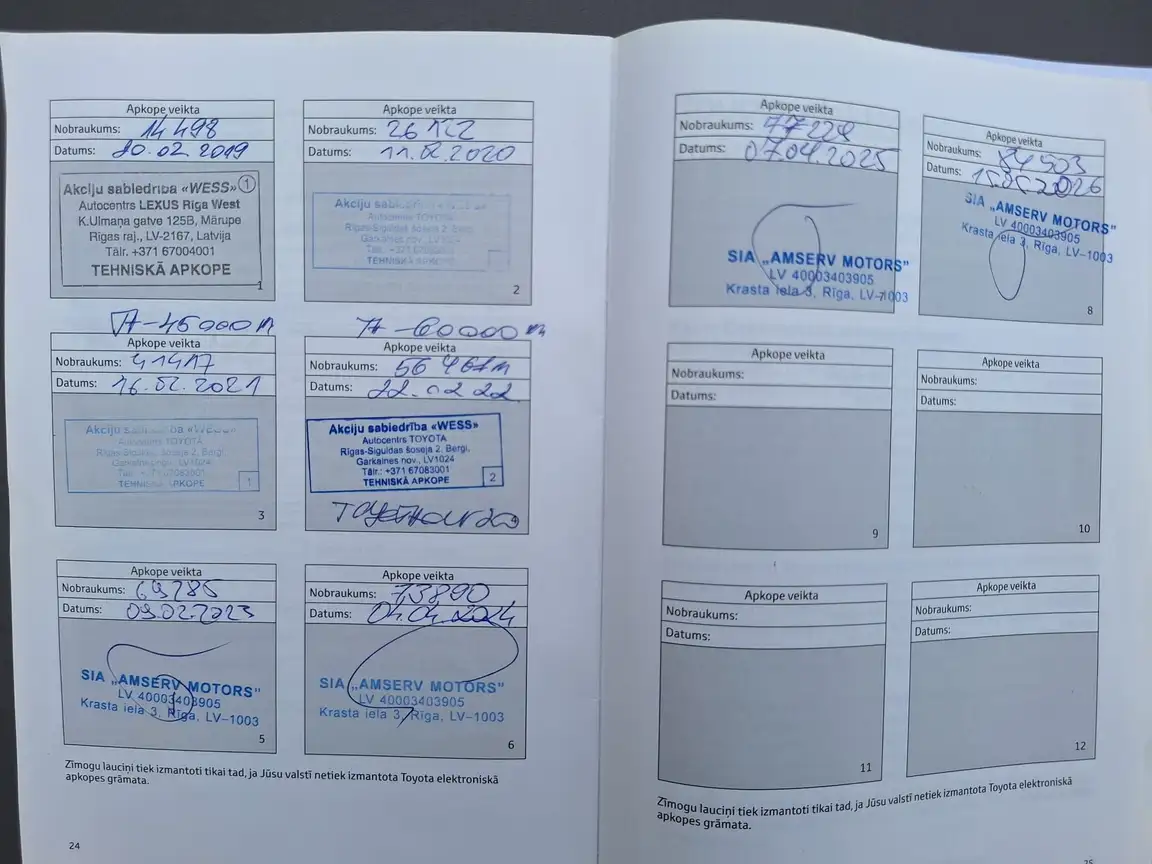 Apkope veikta
Nobraukums: 14 498
Datums: 20.02.2019
Akciju sabiedrība «WESS» 1
Autocentrs LEXUS Rīga West
K.Ulmaņa gatve 125B, Mārupe
Rīgas raj., LV-2167, Latvija
Tālr. +371 67004001
TEHNISKĀ APKOPE
1
Apkope veikta
Nobraukums: 26 122
Datums: 11.02.2020
Akciju
Autocentrs TOYOTA
Rīgas-Siguldas šoseja 2, Berģi,
TEHNISKĀ APKOPE
2
TA-45000
Apkope veikta
Nobraukums: 41417
Datums: 16.02.2021
Akciju sabiedrība «WESS»
Autocentrs TOYOTA
Rīgas-Siguldas šoseja 2, Berģi,
Garkalnes nov., LV1024
Tālr.: +371 67083001
TEHNISKĀ APKOPE
1
3
TA-60000
Apkope veikta
Nobraukums:
Datums: 22.02.22
Akciju sabiedrība «WESS»
Autocentrs TOYOTA
Rīgas-Siguldas šoseja 2, Berģi,
Garkalnes nov., LV1024
Tālr.: +371 67083001
TEHNISKĀ APKOPE
2
4
Apkope veikta
Nobraukums: 69786
Datums: 09.02.2023
SIA „AMSERV MOTORS"
LV 40003403905
Krasta iela 3, Rīga, LV-1003
5
Apkope veikta
Nobraukums: 73890
Datums: 04.04.2024
SIA „AMSERV MOTORS"
LV 40003403905
Krasta iela 3, Rīga, LV-1003
6
Zīmogu lauciņi tiek izmantoti tikai tad, ja Jūsu valstī netiek izmantota Toyota elektroniskā
apkopes grāmata.
24
Apkope veikta
Nobraukums: 77228
Datums: 07.04.2025
SIA „AMSERV MOTORS"
LV 40003403905
Krasta iela 3, Rīga, LV-1003
Apkope veikta
Nobraukums: 84503
Datums:
SIA „AMSERV MOTORS"
LV 40003403905
Krasta iela 3, Rīga, LV-1003
8
Apkope veikta
Nobraukums:
Datums:
9
Apkope veikta
Nobraukums:
Datums:
10
Apkope veikta
Nobraukums:
Datums:
11
Apkope veikta
Nobraukums:
Datums:
12
Zīmogu lauciņi tiek izmantoti tikai tad, ja Jūsu valstī netiek izmantota Toyota elektroniskā
apkopes grāmata.
25